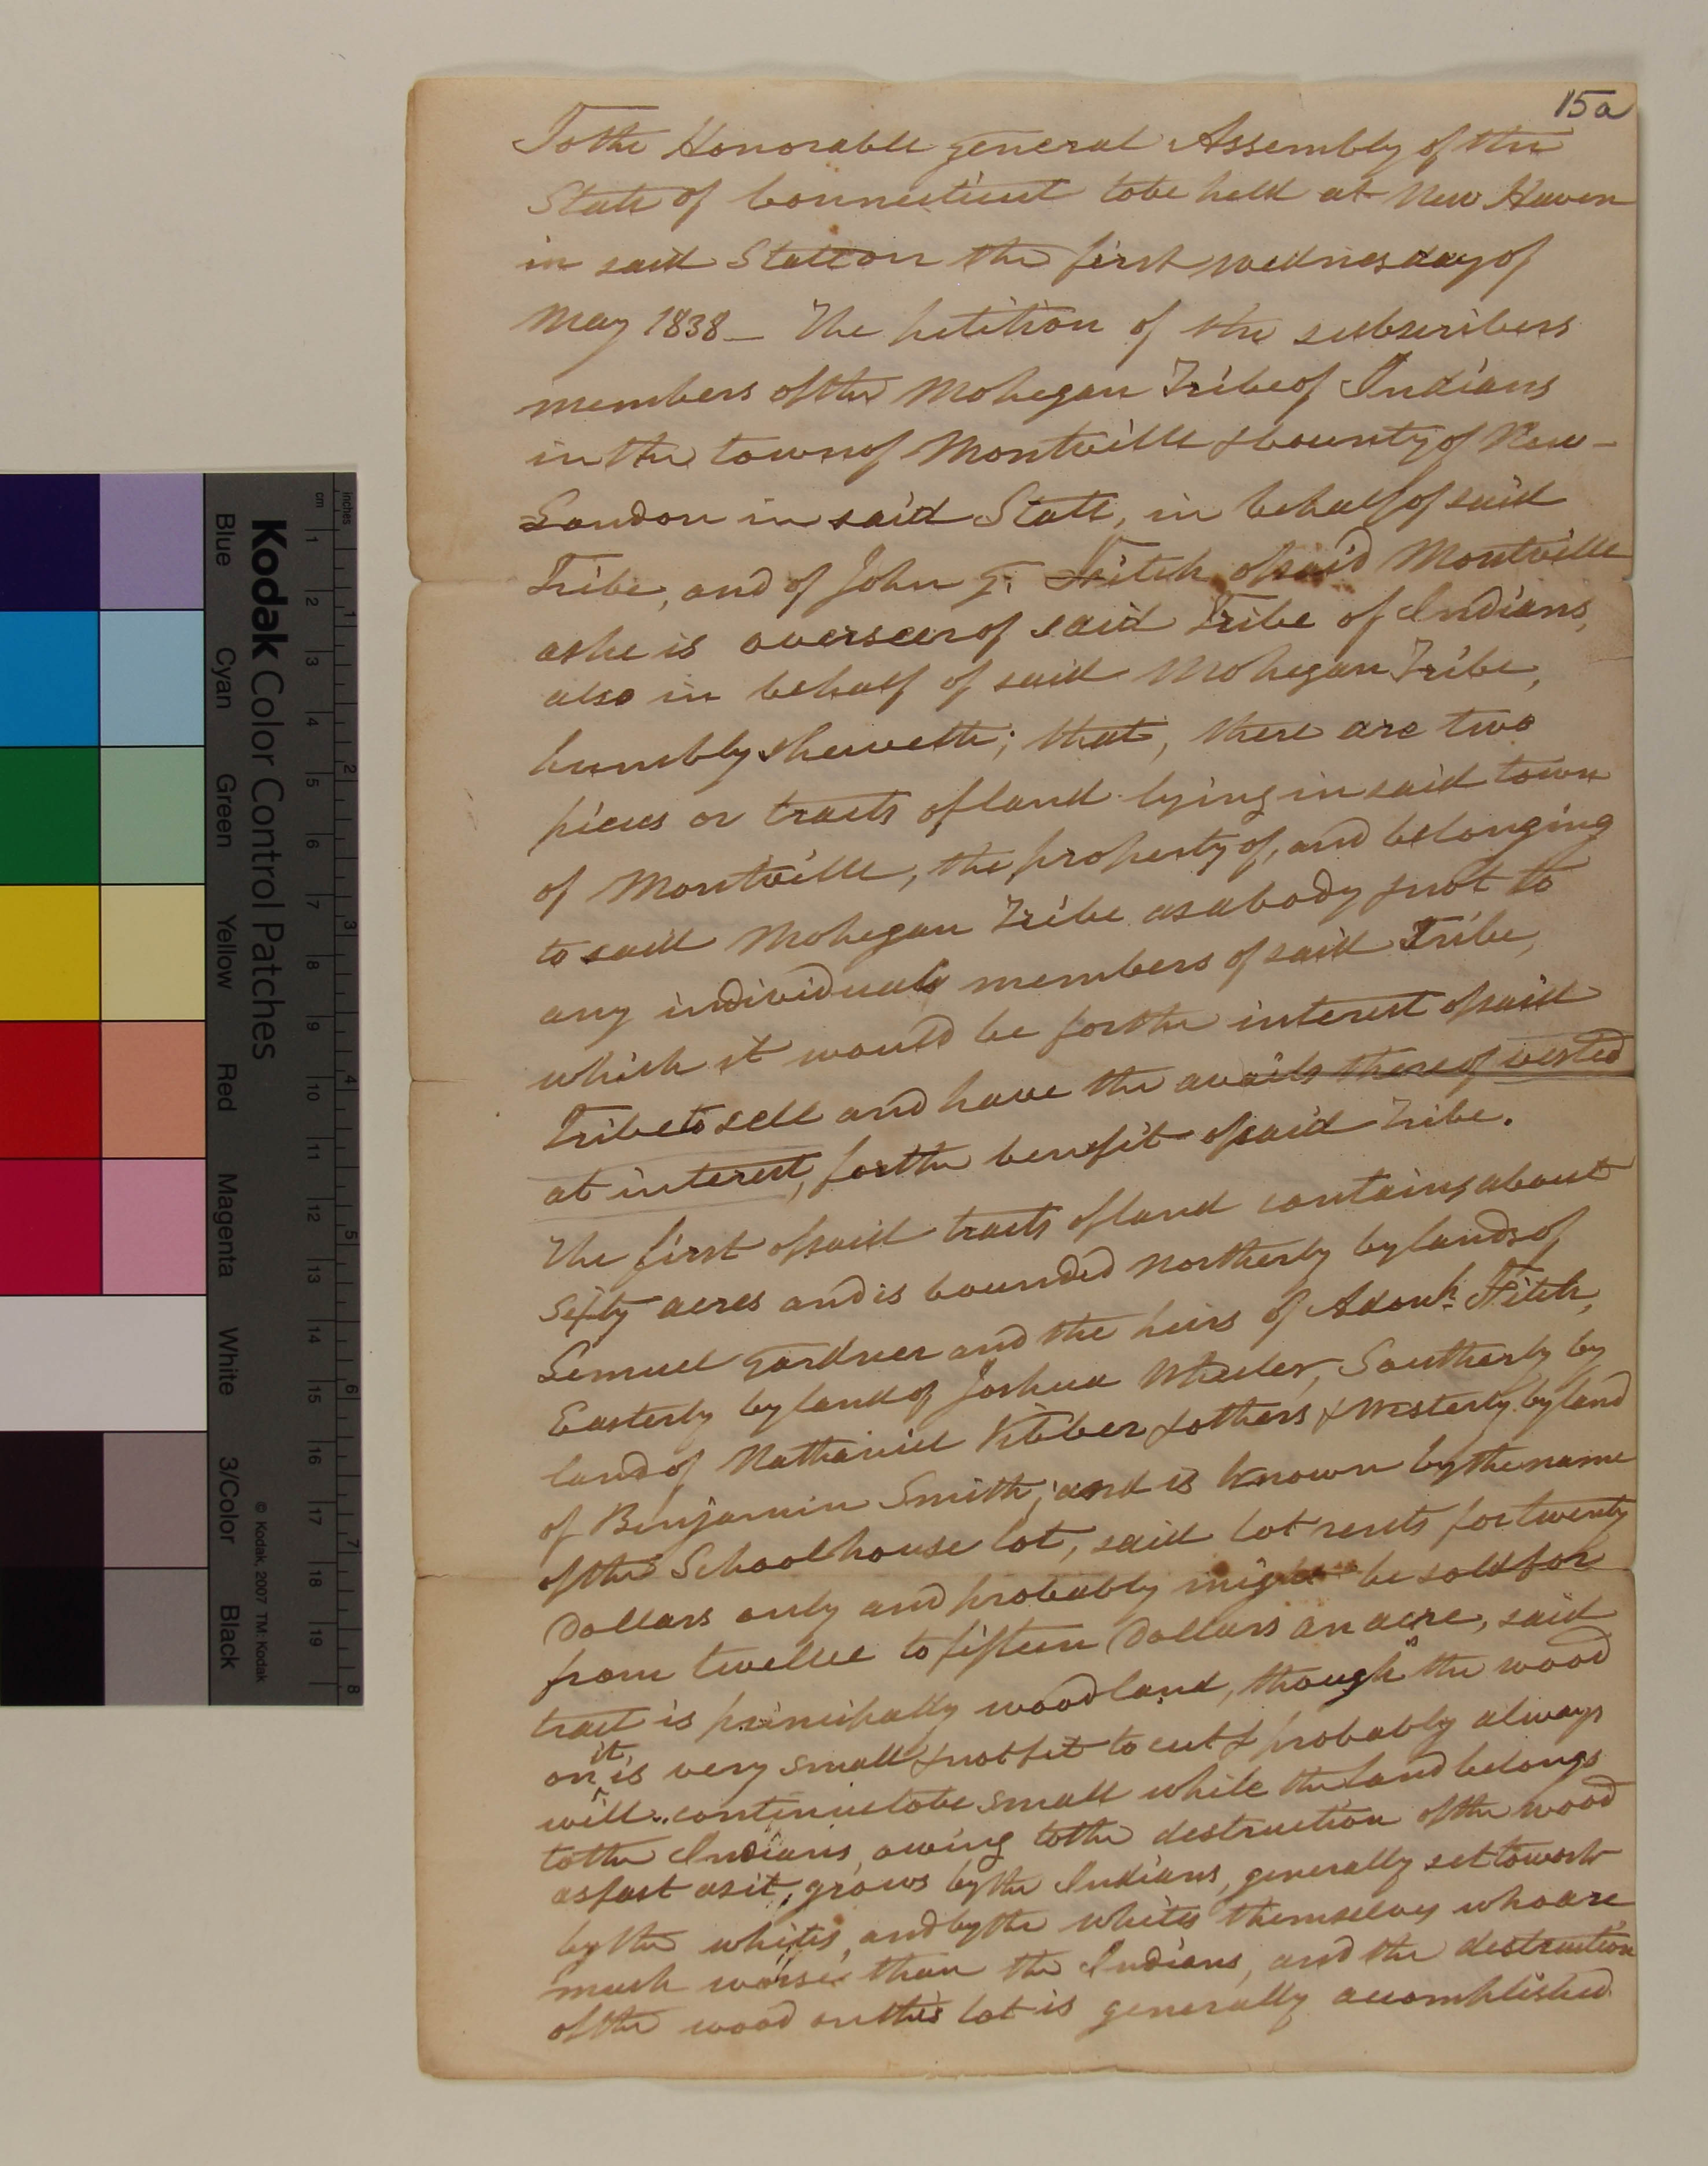 15a
To the Honorable general Assembly of the
State of Connecticut to be held at New Haven
in said State on the first wednesday of
May 1838 — The petition of the subscribers
members of the Mohegan Tribe of Indians
in the town of Montville & County of New-
London in said State, in behalf of said
Tribe, and of John G. Fitch of said Montville
as he is overseer of said Tribe of Indians,
also in behalf of said Mohegan Tribe,
humbly sheweth; that, there are two
pieces or tracts of land lying in said town
of Montville, the property of, and belonging
to said Mohegan Tribe as a body & not to
any individuals members of said Tribe,
which it would be for the interest of said
Tribe to sell and have the avails thereof vested
at interest, for the benefit of said Tribe.
The first of said tracts of land contains about
Sixty acres and is bounded Northerly by lands of
Lemuel Gardner and the heirs of Fitch,
Easterly by land of Joshua Wheeler, Southerly by
land of Nathaniel Vibber & others & Westerly by land
of Benjamin Smith, and is known by the name
of the School house lot, said lot rents for twenty
Dollars only and probably might be sold for
from twelve to fifteen Dollars an acre, said
tract is principally wood land, though the wood
on it is very small & not fit to cut & probably always
will continue to be small while the land belongs
to the Indians, owing to the destruction of the wood
as fast as it grows by the Indians, generally set to work
by the whites, and by the whites themselves who are
much worse than the Indians, and the destruction
of the wood on this lot is generally accomplished
Kodak Color Control Patches
Blue Cyan Green Yellow Red Magenta White 3/Color Black
© Kodak, 2007 TM: Kodak
cm 1 2 3 4 5 6 7 8 9 10 11 12 13 14 15 16 17 18 19
inches 1 2 3 4 5 6 7 8